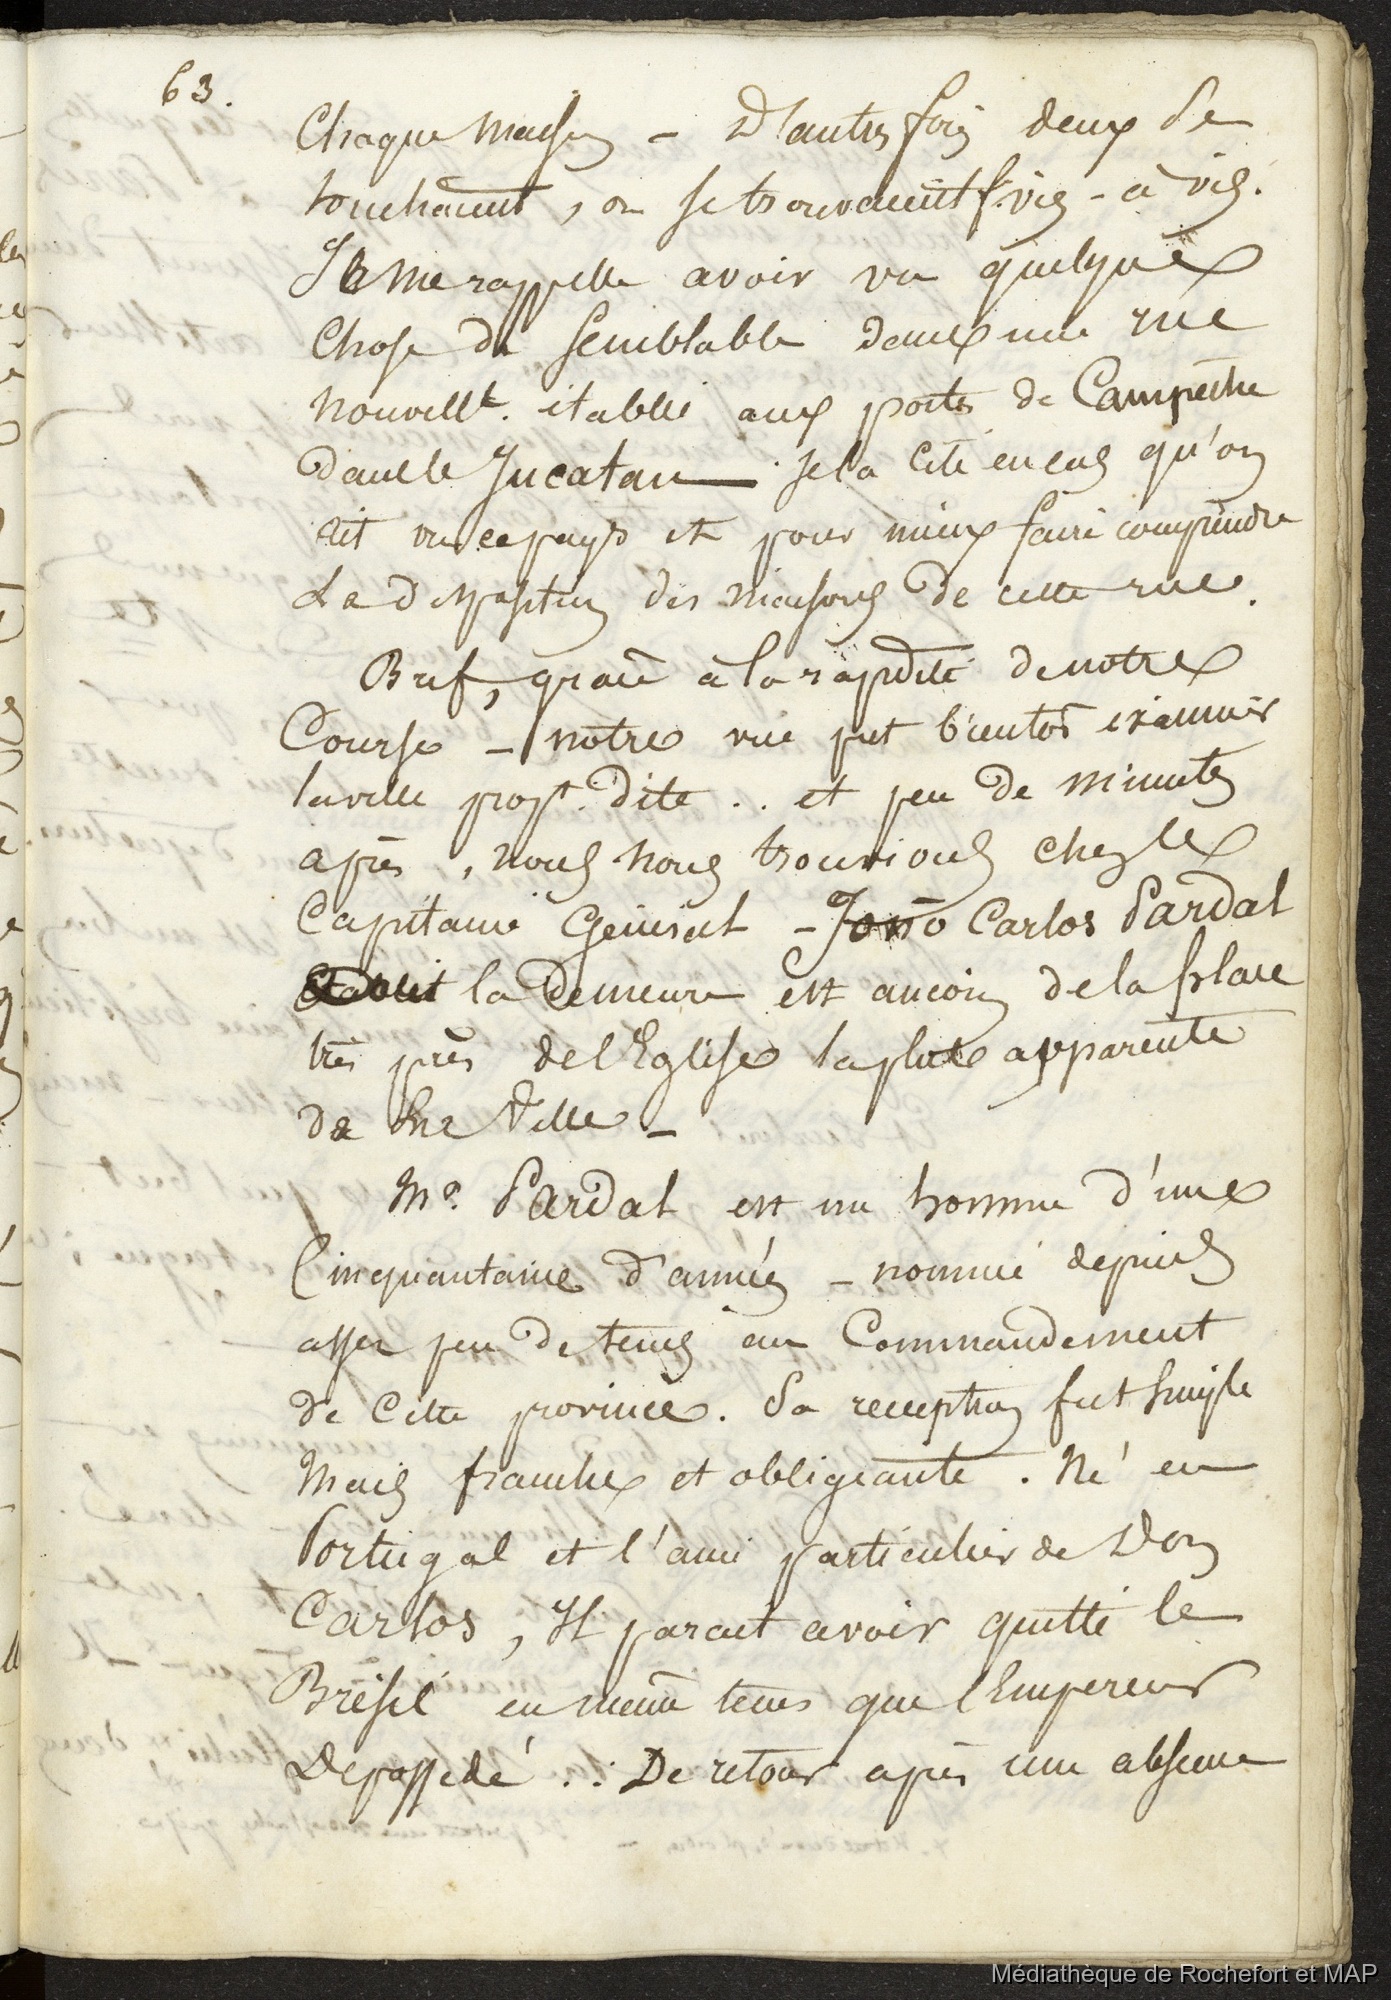 63.
Chaque maison – D'autres fois deux se
touchaient, ou se trouvaient vis-à-vis.
Je me rappelle avoir vu quelque
chose de semblable dans une rue
nouvellt. établie aux portes de Campêche
dans le Jucatan — je la cite en cas qu'on
ait vu ce pays et pour mieux faire comprendre
La disposition des maisons de cette rue.
Bref, grace à la rapidité de notre
Course – notre vue put bientôt examiner
la ville propt. dite .. et peu de minutes
après, nous nous trouvions chez le
Capitaine Général – João Carlos Pardal
la demeure est au coin de la place
très près de l'Eglise la plus apparente
de la Ville –
Mr. Pardal est un homme d'une
Cinquantaine d'années – nommé depuis
assez peu de tems au Commandement
de Cette province. Sa reception fut simple
Mais franche et obligeante. Né en
Portugal et l'ami particulier de Don
Carlos, Il parait avoir quitté le
Brésil en même tems que l'Empereur
Depossédé .. De retour après une absence
Médiathèque de Rochefort et MAP